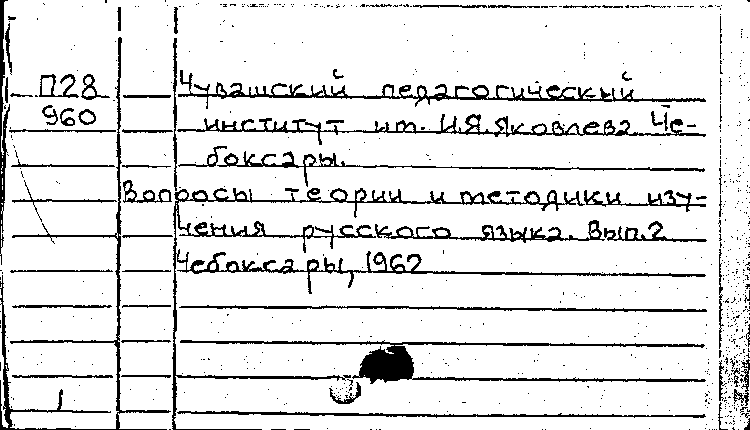 П28
960
Чувашский педагогический
институт им. И.Я.Яковлева Че-
боксары.
Вопросы теории и методики изу-
чения русского языка. Вып.2
Чебоксары, 1962
1